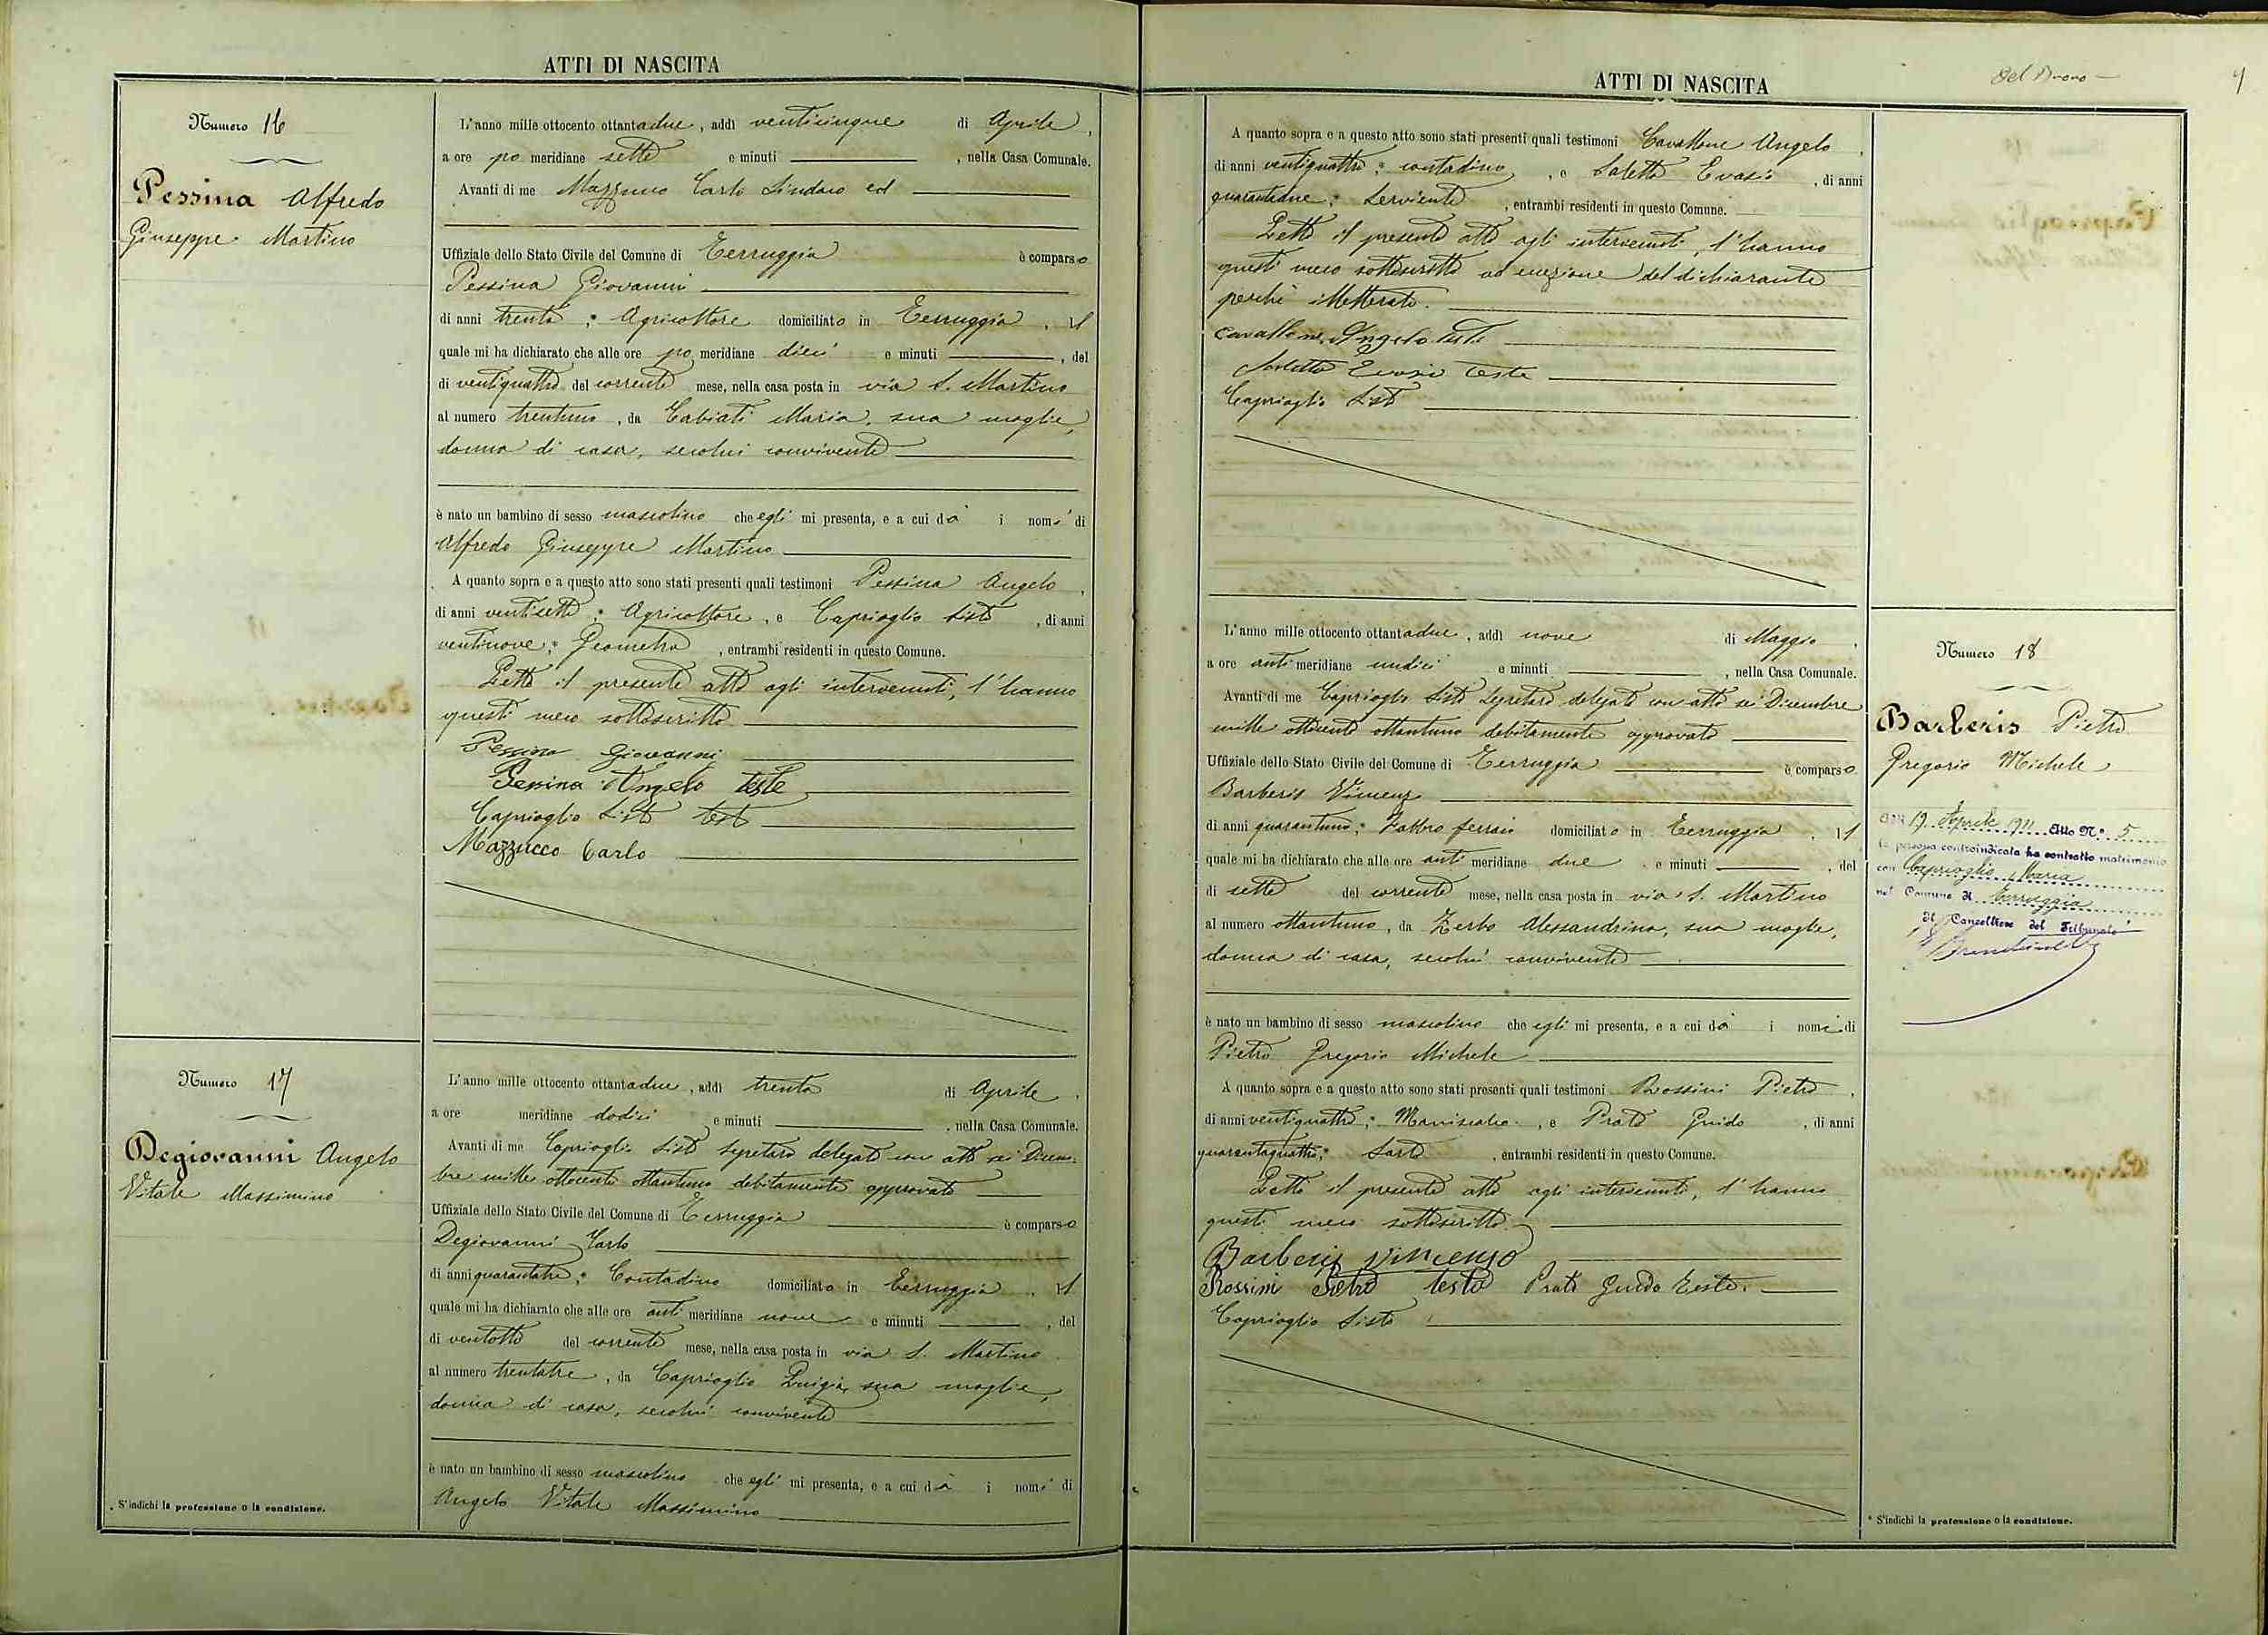 ATTI DI NASCITA
Numero 16
Pessina Alfredo
Giuseppe Martino
L'anno mille ottocento ottantadue, addì venticinque di Aprile,
a ore pomeridiane sette e minuti , nella Casa Comunale.
Avanti di me Mazzucco Carlo Sindaco ed
Uffiziale dello Stato Civile del Comune di Terruggia è comparso
Pessina Giovanni
di anni trenta; Agricoltore domiciliato in Terruggia, il
quale mi ha dichiarato che alle ore pomeridiane dieci e minuti , del
dì ventiquattro del corrente mese, nella casa posta in via S. Martino
al numero trentuno, da Cabiati Maria, sua moglie,
donna di casa, secolui convivente
è nato un bambino di sesso mascolino che egli mi presenta, e a cui dà i nomi di
Alfredo Giuseppe Martino
A quanto sopra e a questo atto sono stati presenti quali testimoni Pessina Angelo,
di anni ventisette; Agricoltore, e Caprioglio Sisto, di anni
ventinove; Geometra, entrambi residenti in questo Comune.
Letto il presente atto agli intervenuti, l'hanno
questi meco sottoscritto
Pessina Giovanni
Pessina Angelo teste
Caprioglio Sisto teste
Mazzucco Carlo
Numero 17
Degiovanni Angelo
Vitale Massimino
L'anno mille ottocento ottantadue, addì trenta di Aprile,
a ore meridiane dodici e minuti , nella Casa Comunale.
Avanti di me Caprioglio Sisto Segretario delegato con atto sei Dicem-
bre mille ottocento ottantuno debitamente approvato
Uffiziale dello Stato Civile del Comune di Terruggia è comparso
Degiovanni Carlo
di anni quarantatre; Contadino domiciliato in Terruggia, il
quale mi ha dichiarato che alle ore antimeridiane nove e minuti , del
dì ventotto del corrente mese, nella casa posta in via S. Martino
al numero trentatre, da Caprioglio Luigia, sua moglie,
donna di casa, secolui convivente
è nato un bambino di sesso mascolino che egli mi presenta, e a cui dà i nomi di
Angelo Vitale Massimino
S'indichi la professione o la condizione.
ATTI DI NASCITA
A quanto sopra e a questo atto sono stati presenti quali testimoni Cavallone Angelo,
di anni ventiquattro; contadino, e Saletta Evasio, di anni
quarantadue; Serviente, entrambi residenti in questo Comune.
Letto il presente atto agli intervenuti, l'hanno
questi meco sottoscritto ad eccezione del dichiarante
perché illetterato.
Cavallone Angelo teste
Saletta Evasio teste
Caprioglio Sisto
Numero 18
Barberis Pietro
Gregorio Michele
L'anno mille ottocento ottantadue, addì nove di Maggio,
a ore antimeridiane undici e minuti , nella Casa Comunale.
Avanti di me Caprioglio Sisto Segretario delegato con atto sei Dicembre
mille ottocento ottantuno debitamente approvato
Uffiziale dello Stato Civile del Comune di Terruggia è comparso
Barberis Vincenzo
di anni quarantuno; Fabbro ferraio domiciliato in Terruggia, il
quale mi ha dichiarato che alle ore antimeridiane due e minuti , del
dì sette del corrente mese, nella casa posta in via S. Martino
al numero ottantuno, da Zerbo Alessandrina, sua moglie,
donna di casa, secolui convivente
è nato un bambino di sesso mascolino che egli mi presenta, e a cui dà i nomi di
Pietro Gregorio Michele
A quanto sopra e a questo atto sono stati presenti quali testimoni Rossini Pietro,
di anni ventiquattro; Maniscalco, e Prato Guido, di anni
quarantaquattro; Sarto, entrambi residenti in questo Comune.
Letto il presente atto agli intervenuti, l'hanno
questi meco sottoscritto
Barberis Vincenzo
Rossini Pietro teste Prato Guido teste.
Caprioglio Sisto
19 Aprile 1911 Atto N° 5
la persona controindicata ha contratto matrimonio
con Caprioglio Maria
nel Comune di Terruggia
Il Cancelliere del Tribunale
* S'indichi la professione o la condizione.